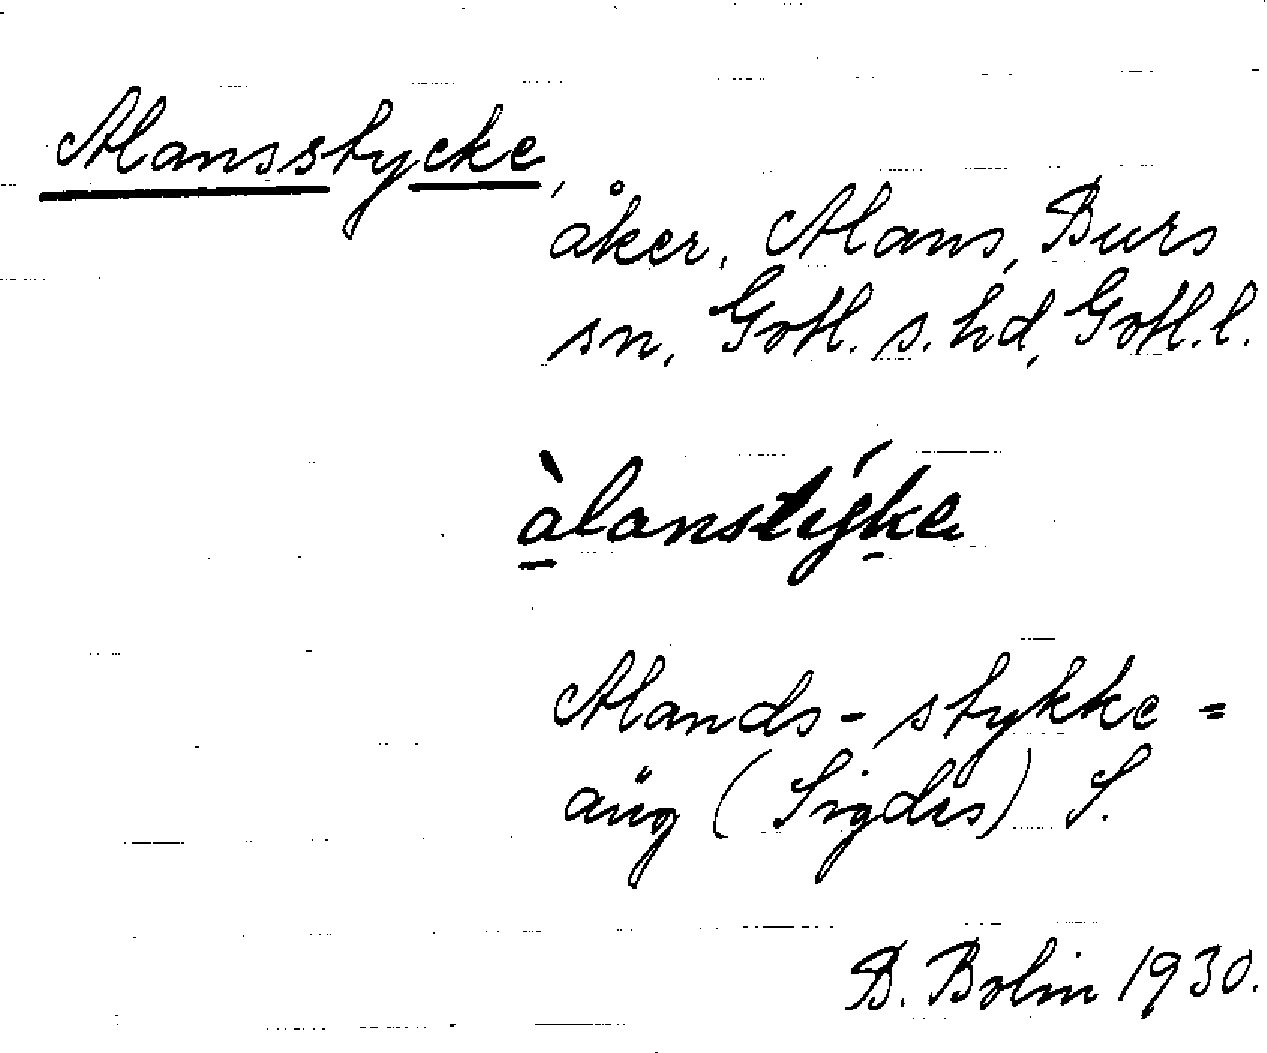 Alansstycke,
åker, Alans, Burs
sn, Gotl. s. hd, Gotl. l.
àlanstýke
Alands-stykke =
äng (Sigdes) S.
B. Bolin 1930.